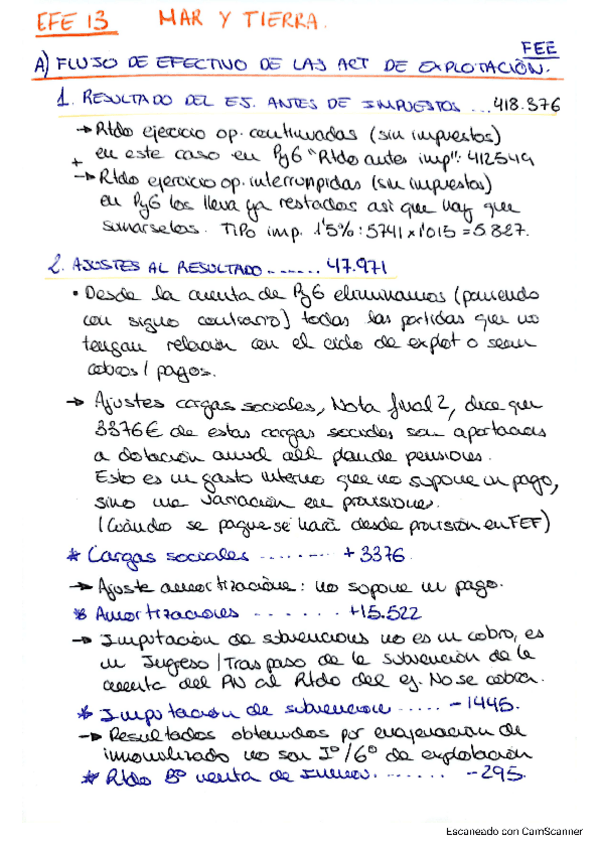 EFE 13 MAR Y TIERRA.
FEE
A) FLUJO DE EFECTIVO DE LAS ACT DE EXPLOTACIÓN.
1. RESULTADO DEL EJ. ANTES DE IMPUESTOS ... 418.376
→ Rtdo ejercicio op. continuadas (sin impuestos)
en este caso en PyG "Rtdo antes imp": 412549
+
→ Rtdo ejercicio op. interrumpidas (sin impuestos)
en PyG los lleva ya restados así que hay que
sumárselos. TIPO imp. 1'5% : 5741 x 1'015 = 5827.
2. AJUSTES AL RESULTADO ....... 47.971
• Desde la cuenta de PyG eliminamos (poniendo
con signo contrario) todas las partidas que no
tengan relación con el ciclo de explot o sean
cobros / pagos.
→ Ajustes cargas sociales, Nota final 2, dice que
3376€ de estas cargas sociales son aportaciones
a dotación anual del plan de pensiones.
Esto es un gasto interno que no supone un pago,
sino una variación en provisiones.
(Cuándo se pague se hará desde provisión en FEF)
* Cargas sociales ........ + 3376
→ Ajuste amortizaciones: no supone un pago.
* Amortizaciones ....... +15.522
→ Imputación de subvenciones no es un cobro, es
un Ingreso / Traspaso de la subvención de la
cuenta del PN al Rtdo del ej. No se cobra.
* Imputación de subvencion ..... - 1445.
→ Resultados obtenidos por enajenación de
inmovilizado no son Iº / Gº de explotación
* Rtdo Bº venta de Inmov. ....... - 295.
Escaneado con CamScanner